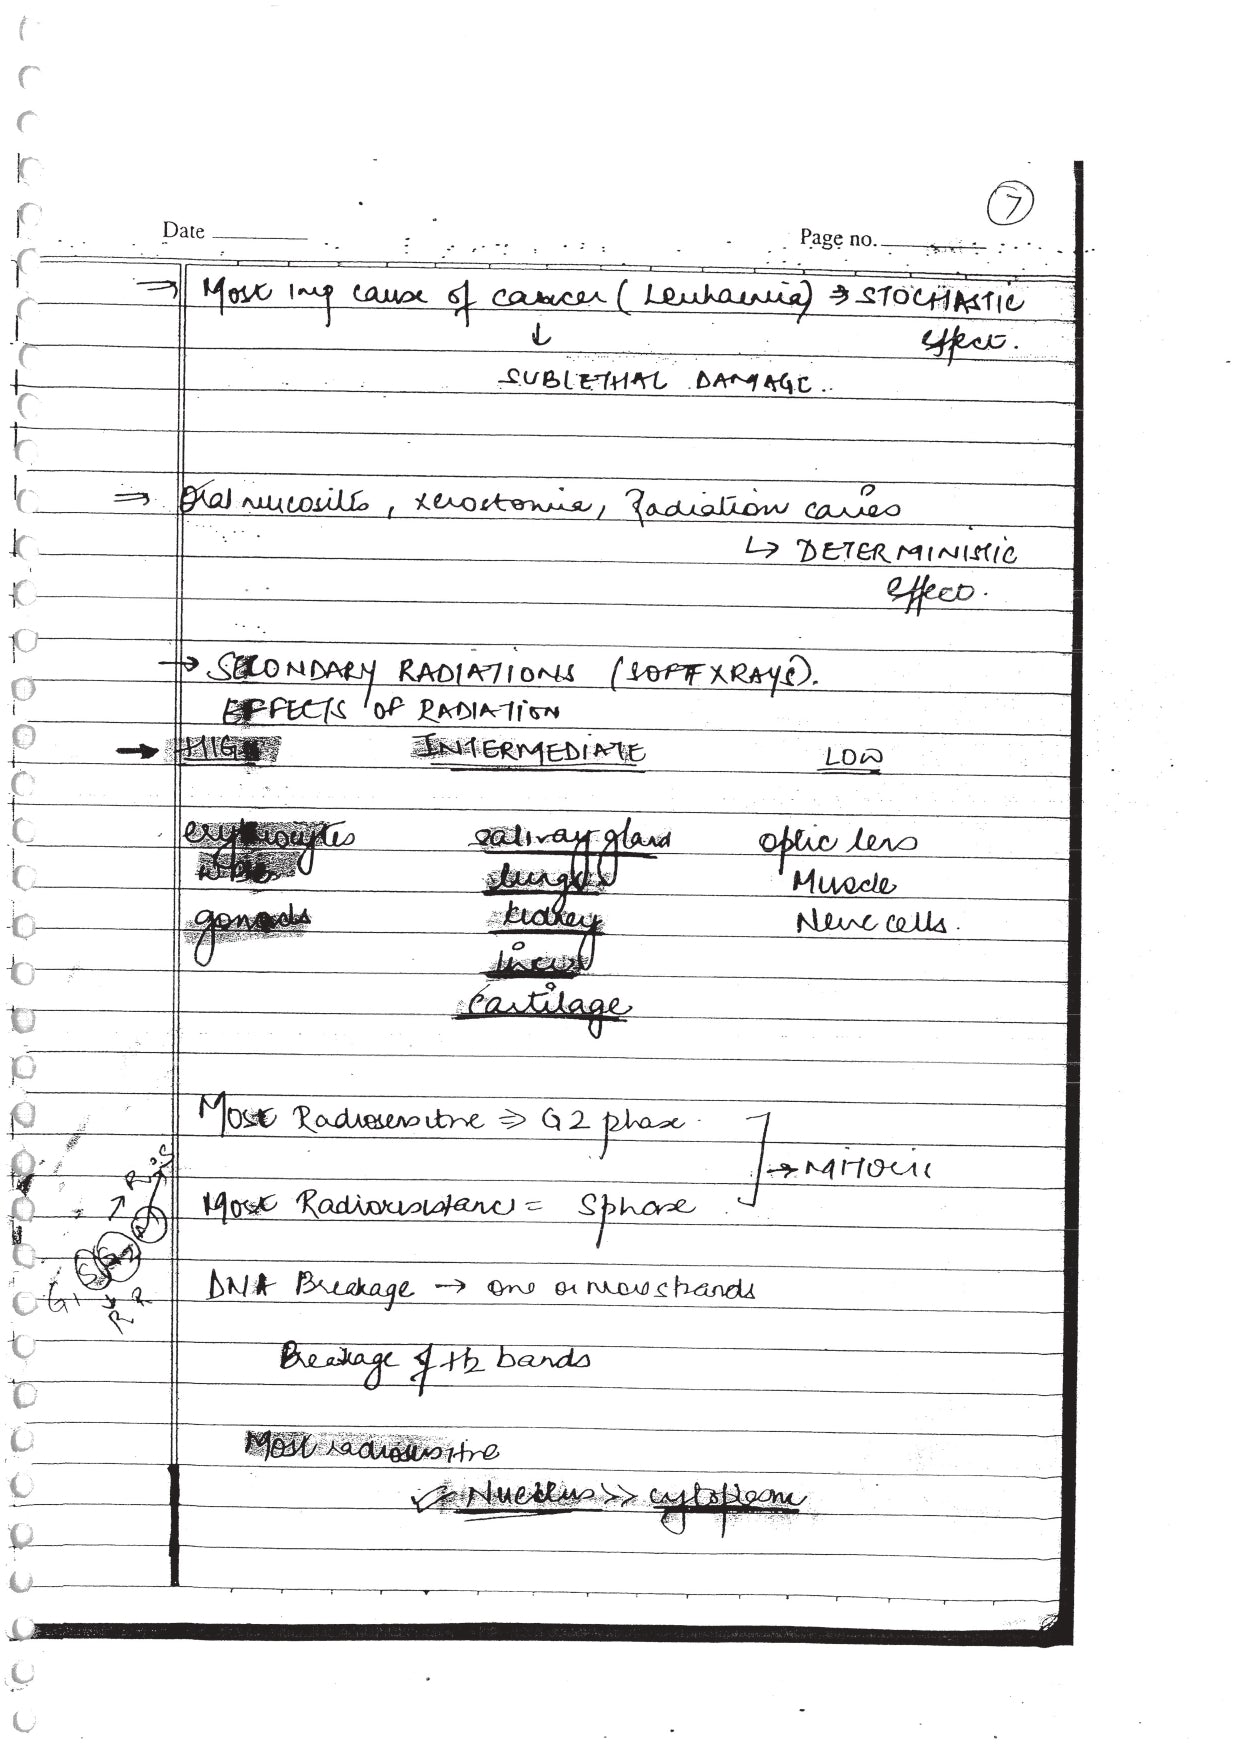 7
Date
Page no.
⇒ Most imp cause of cancer (Leukaemia) ⇒ STOCHASTIC
effect.
↓
SUBLETHAL DAMAGE.
⇒ Oral mucositis, xerostomia, Radiation caries
↳ DETERMINISTIC
effect.
→ SECONDARY RADIATIONS (SOFT XRAYS).
EFFECTS OF RADIATION
→ HIGH INTERMEDIATE LOW
erythrocytes salivay gland optic lens
WBCs lungs Muscle
gonads kidney Nerve cells.
liver
cartilage
Most Radiosensitive ⇒ G2 phase.
→ MITOCIC
Most Radioresistance = S phase
G1 S G2 M
DNA Breakage → one or more strands
Breakage of H2 bands
Most radiosensitive
Nucleus >> cytoplasm